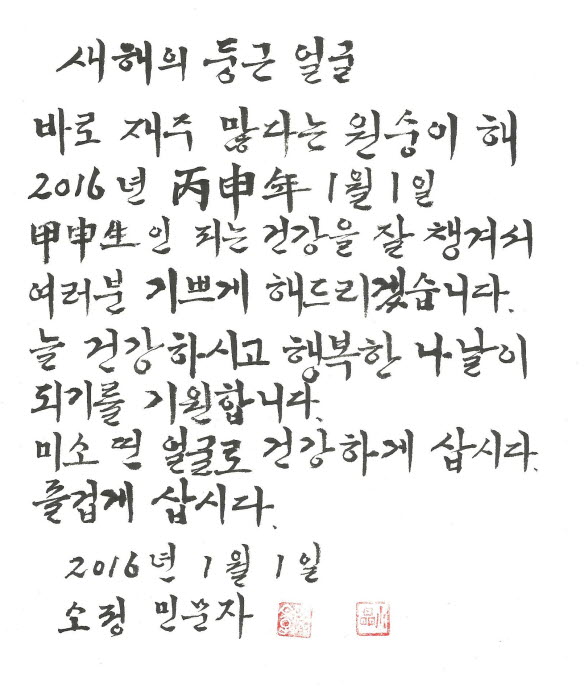 새해의 둥근 얼굴
바로 재주 많다는 원숭이 해
2016년 丙申年 1월 1일
甲申生인 되는 건강을 잘 챙겨서
여러분 기쁘게 해드리겠습니다.
늘 건강하시고 행복한 나날이
되기를 기원합니다.
미소 띤 얼굴로 건강하게 삽시다.
즐겁게 삽시다.
2016년 1월 1일
소정 민문자